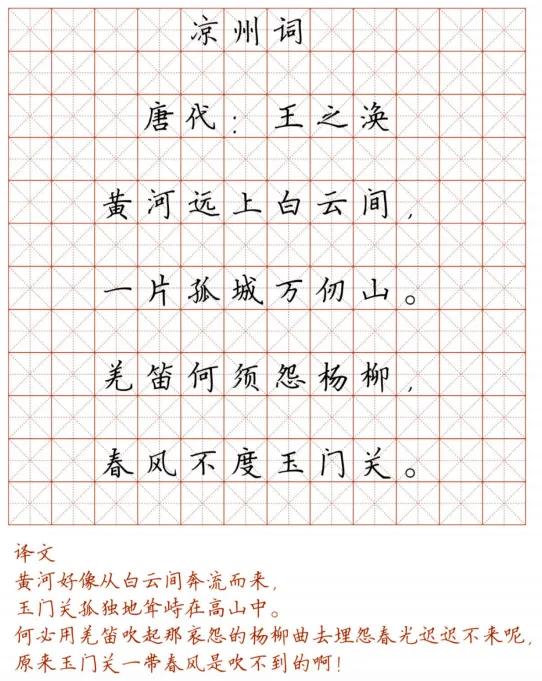 凉州词
唐代：王之涣
黄河远上白云间，
一片孤城万仞山。
羌笛何须怨杨柳，
春风不度玉门关。
译文
黄河好像从白云间奔流而来，
玉门关孤独地耸峙在高山中。
何必用羌笛吹起那哀怨的杨柳曲去埋怨春光迟迟不来呢，
原来玉门关一带春风是吹不到的啊！